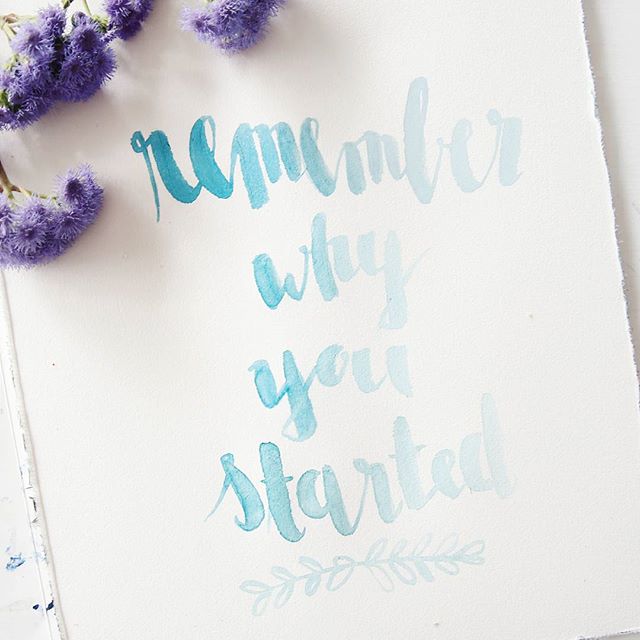 remember
why
you
started